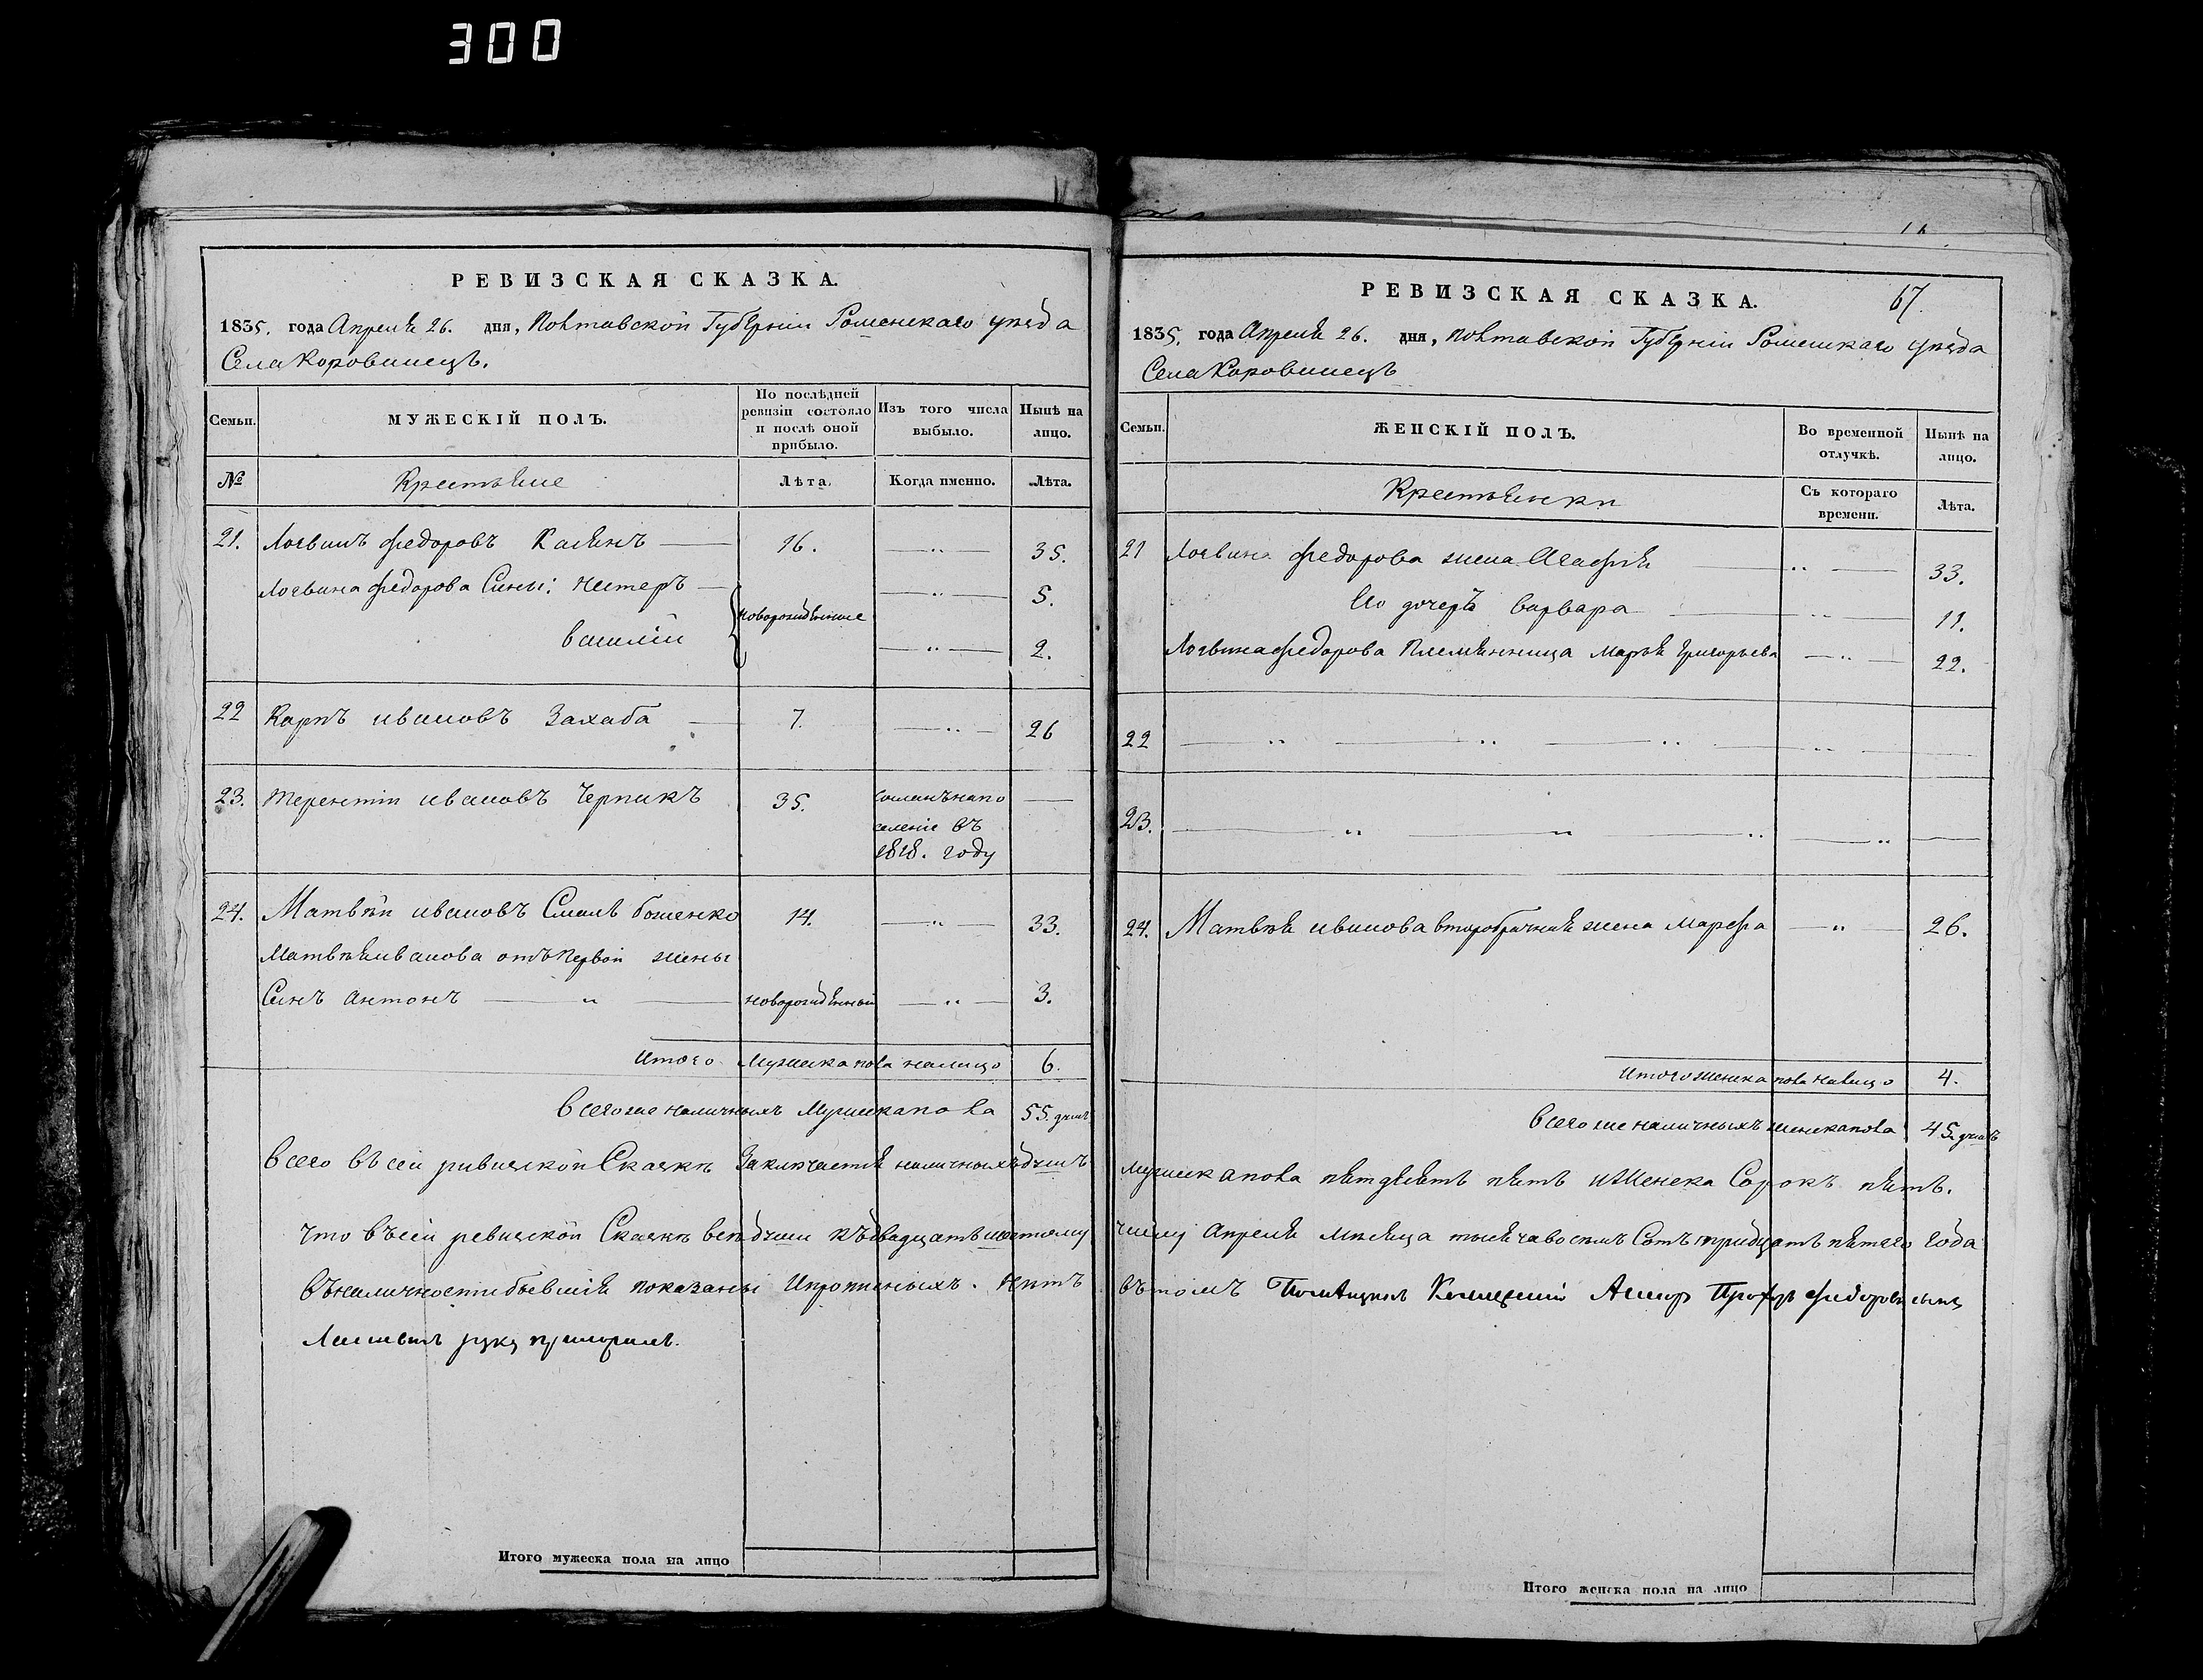 300
РЕВИЗСКАЯ СКАЗКА.
1835. года Апреля 26. дня, Полтавской Губернии Роменскаго уезда
Села Коровинецъ.
Семьи.
МУЖЕСКІЙ ПОЛЪ.
По послѣдней ревизіи состояло и послѣ оной прибыло.
Изъ того числа выбыло.
Нынѣ на лицо.
№
Крестьяне
Лѣта.
Когда именно.
Лѣта.
21. Логвинъ Федоровъ Калинъ 16. 35.
Логвина Федорова Сины: Нестеръ 5.
новорожденные
василій 2.
22 Карпъ ивановъ Захаба 7. 26
23. Терентій ивановъ Черпикъ 35. сосланъ на по
селеніе въ
1818. году
24. Матвѣй ивановъ 14. 33.
Матвѣя иванова отъ первой жены
Синъ антонъ новорожденный 3.
Итого Мужеска пола налицо 6.
Всего же наличныхъ Мужеска пола 55. душъ
Всего въ сей ревизской Сказкѣ Заключается наличныхъ душъ
что въ сей ревизской Сказкѣ всѣ души къ двадцать шестому
въ наличности бывшія показаны и прописныхъ. Нѣтъ
руку приложилъ.
Итого мужеска пола на лицо
РЕВИЗСКАЯ СКАЗКА.
67.
1835. года Апреля 26. дня, Полтавской Губерніи Роменскаго уезда
Села Коровинецъ
Семьи.
ЖЕНСКІЙ ПОЛЪ.
Во временной отлучкѣ.
Нынѣ на лицо.
Крестьянки
Съ котораго времени.
Лѣта.
21 Логвина Федорова жена Агафія 33.
Его дочерь варвара 11.
Логвина Федорова Племянница марья Григорьева 22.
22
23.
24. Матвѣя иванова второбрачная жена Марфа 26.
Итого женска пола налицо 4.
Всего же наличныхъ женска пола 45. душъ
мужеска пола пятдесятъ пять и женска Сорокъ пять.
числу апреля месяца тысяча восемъ Сотъ тридцать пятаго года
въ томъ Помещикъ Федоровъ сынъ
Итого женска пола на лицо